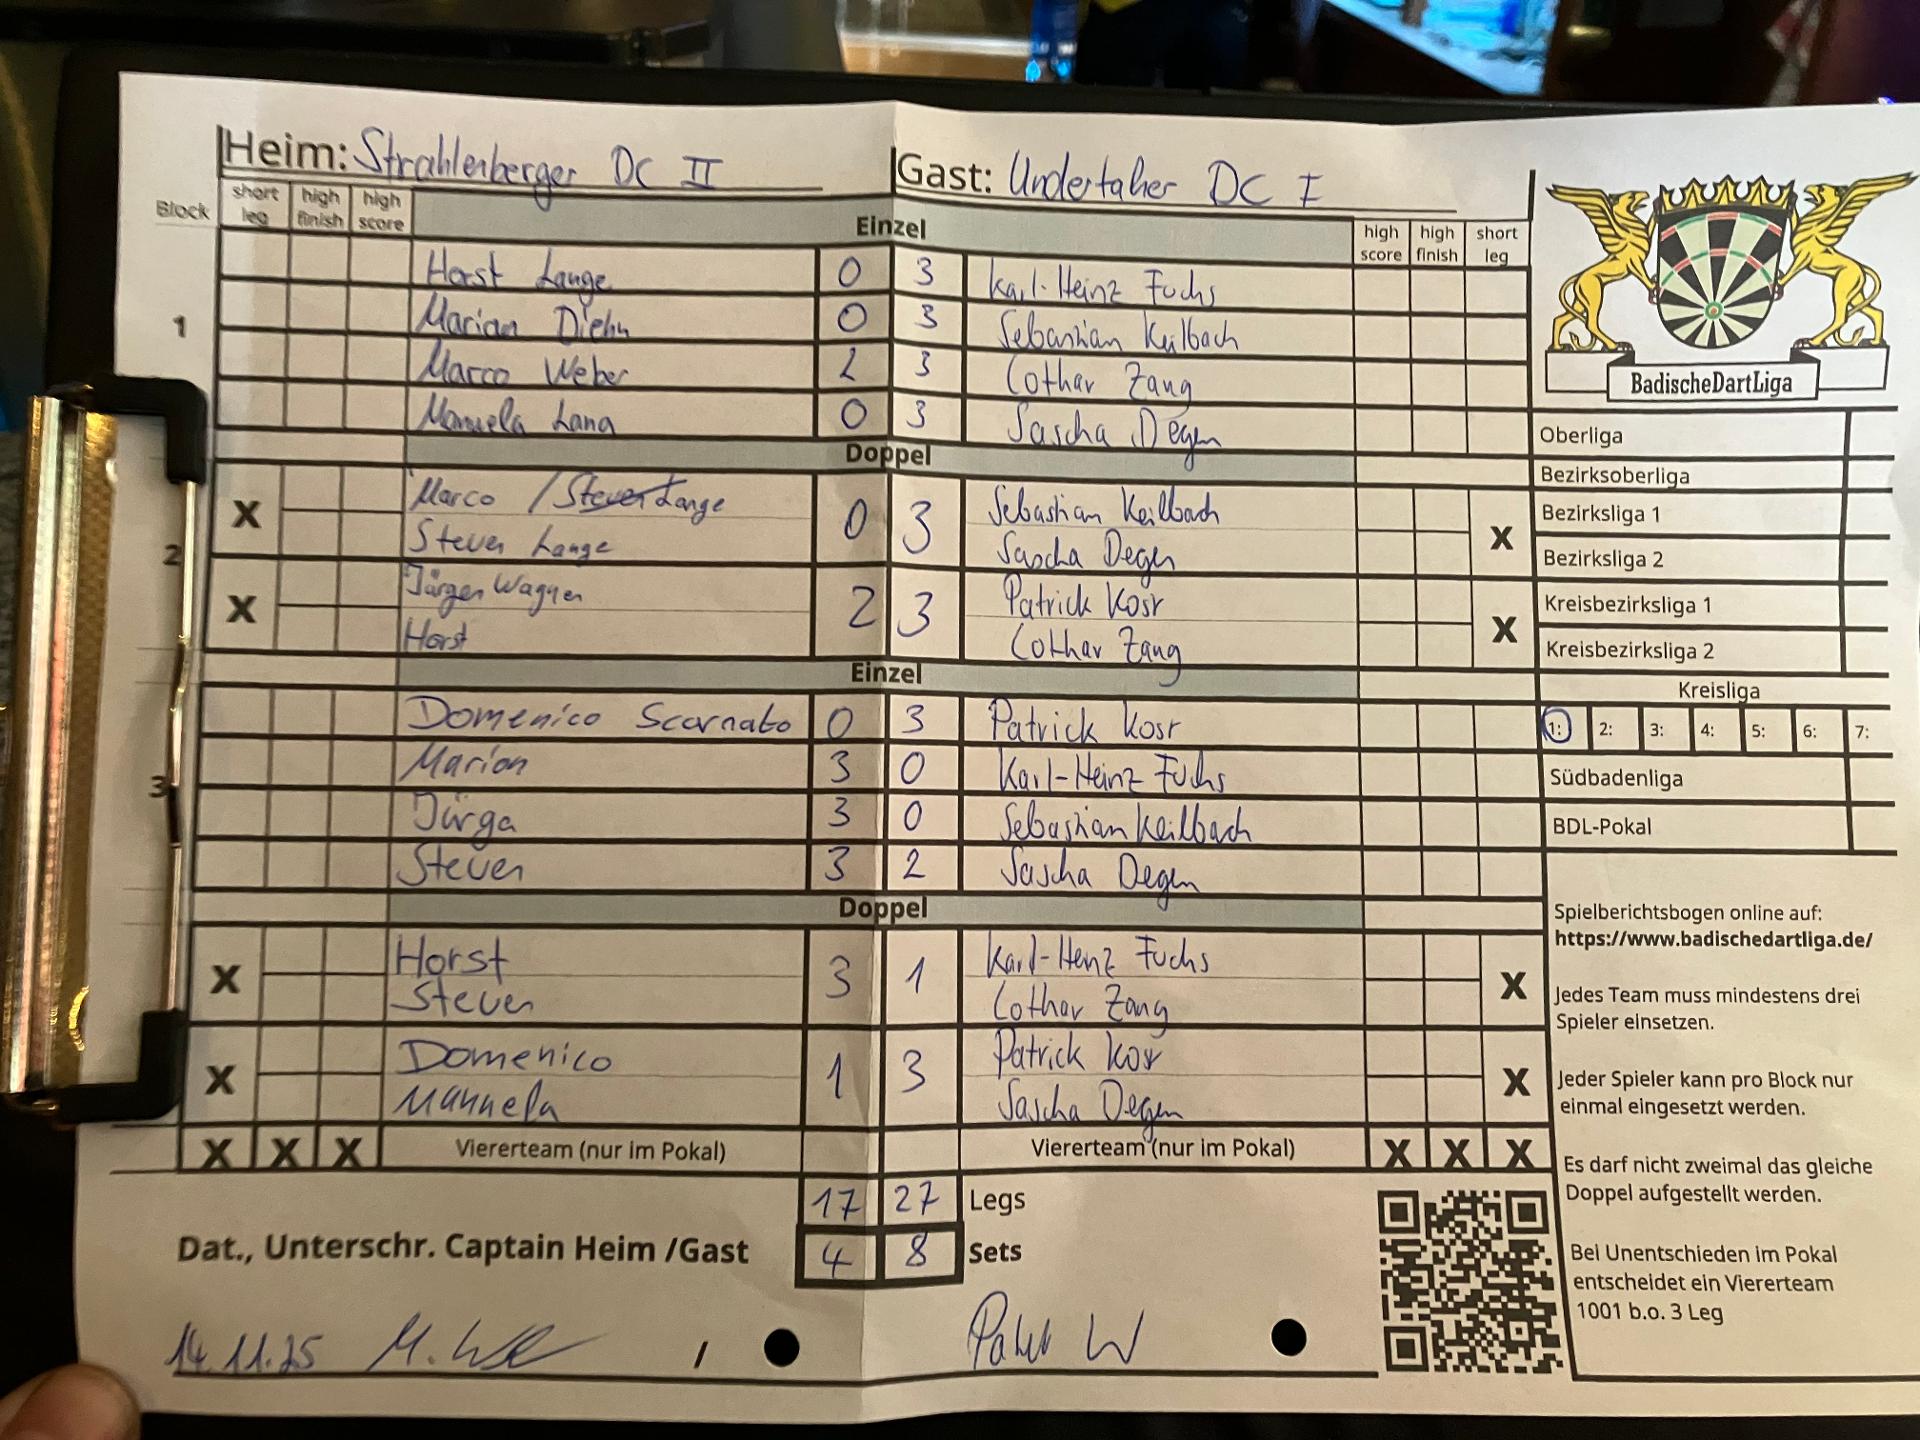 Heim: Strahlenberger DC II
Gast: Undertaker DC I
Block short leg high finish high score Einzel high score high finish short leg
Horst Lange 0 3 Karl-Heinz Fuchs
1 Marian Diehn 0 3 Sebastian Keilbach
Marco Weber 2 3 Lothar Zang
Manuela Lana 0 3 Sascha Degen
Doppel
X Marco / Steven Lange 0 3 Sebastian Keilbach X
2 Steven Lange Sascha Degen
X Jürgen Wagner 2 3 Patrick Kosr X
Horst Lothar Zang
Einzel
Domenico Scornato 0 3 Patrick Kosr
Marion 3 0 Karl-Heinz Fuchs
3 Jürga 3 0 Sebastian Keilbach
Steven 3 2 Sascha Degen
Doppel
X Horst 3 1 Karl-Heinz Fuchs X
Steven Lothar Zang
X Domenico 1 3 Patrick Kosr X
Manuela Sascha Degen
X X X Vierterteam (nur im Pokal) Vierterteam (nur im Pokal) X X X
17 27 Legs
Dat., Unterschr. Captain Heim /Gast 4 8 Sets
14.11.25 /
BadischeDartLiga
Oberliga
Bezirksoberliga
Bezirksliga 1
Bezirksliga 2
Kreisbezirksliga 1
Kreisbezirksliga 2
Kreisliga
1: 2: 3: 4: 5: 6: 7:
Südbadenliga
BDL-Pokal
Spielberichtsbogen online auf:
https://www.badischedartliga.de/
Jedes Team muss mindestens drei
Spieler einsetzen.
Jeder Spieler kann pro Block nur
einmal eingesetzt werden.
Es darf nicht zweimal das gleiche
Doppel aufgestellt werden.
Bei Unentschieden im Pokal
entscheidet ein Viererteam
1001 b.o. 3 Leg